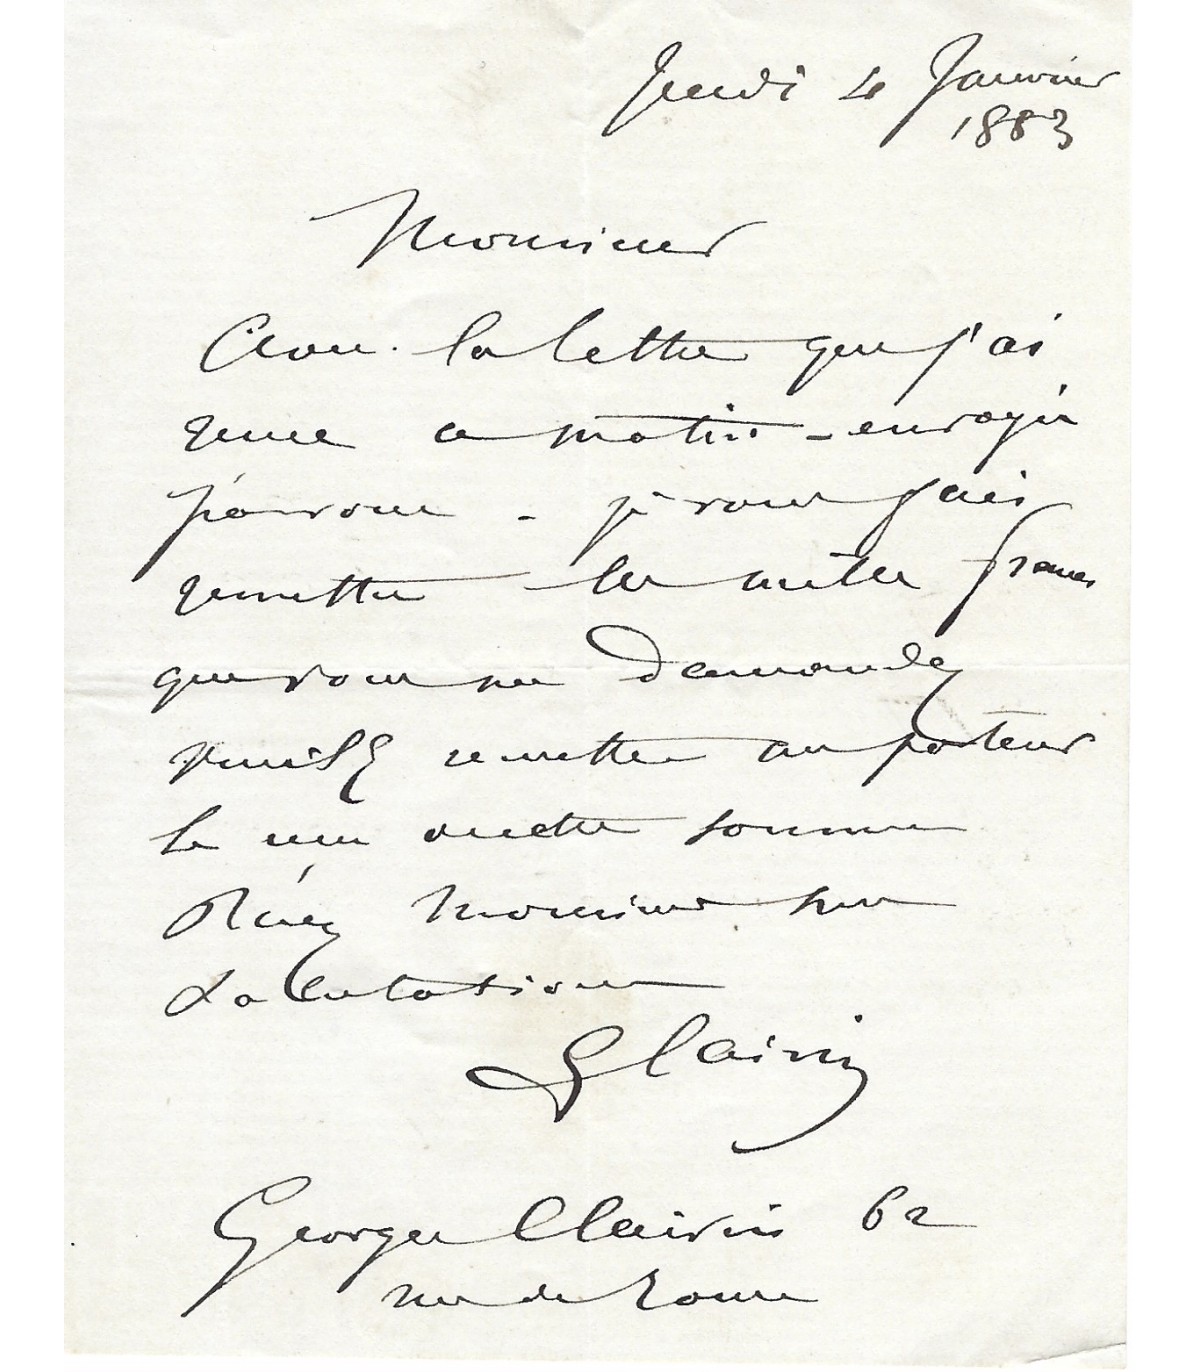 Jeudi 4 Janvier
1883
Monsieur
Avec la lettre que j'ai
reçue ce matin - envoyée
par vous - je vous fais
remettre les mille francs
que vous me demandez
veuillez remettre au porteur
le reçu de cette somme
Recevez Monsieur mes
Salutations
GClairin
Georges Clairin 62
rue de Rome